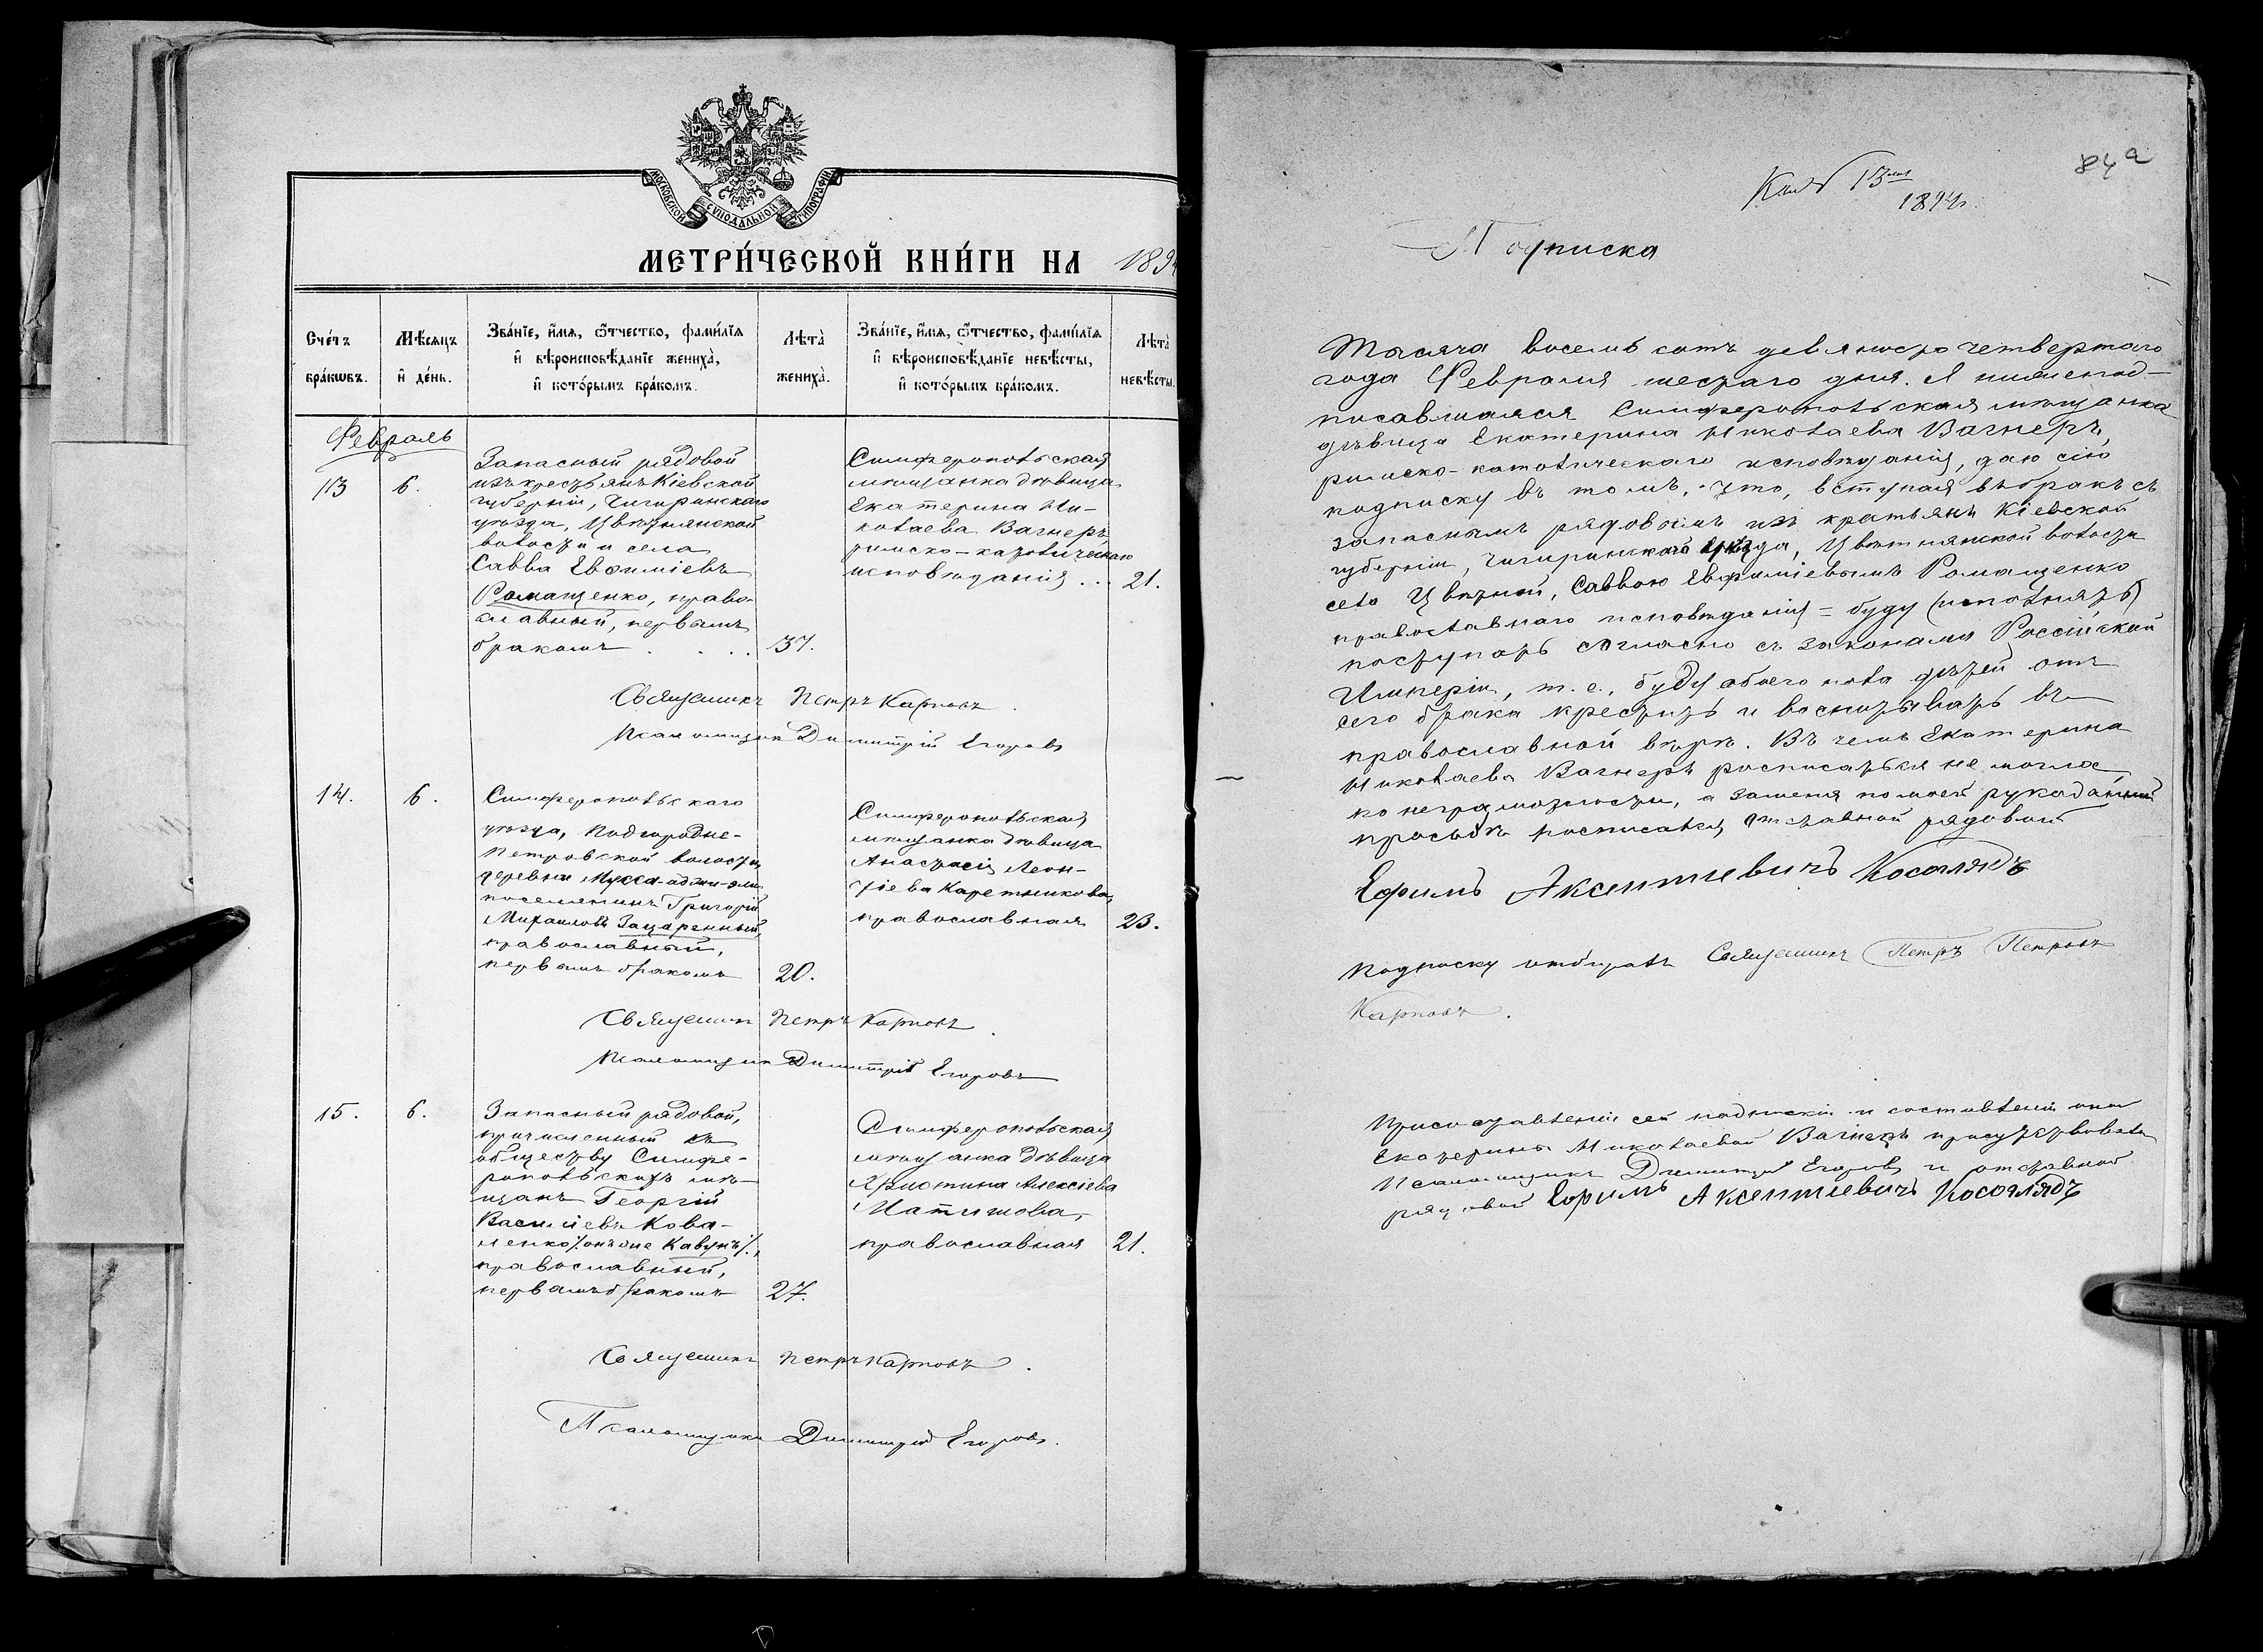 МОСКОВСКОЙ СѴНОДАЛЬНОЙ ТИПОГРАФІИ
МЕТРИ́ЧЕСКОЙ КНИ́ГИ НА 1894
Сче́тъ бра́кѡвъ.
Мѣ́сяцъ и҆ де́нь.
Зва́нїе, и҆́мѧ, ѻ҆́тчество, фами́лїѧ
и҆ вѣроисповѣ́данїе жениха̀,
и҆ кото́рымъ бра́комъ.
Лѣта̀
жениха̀.
Зва́нїе, и҆́мѧ, ѻ҆́тчество, фами́лїѧ
и҆ вѣроисповѣ́данїе невѣ́сты,
и҆ кото́рымъ бра́комъ.
Лѣта̀
невѣ́сты.
Февраль
13
6.
Запасный рядовой
изъ крестьянъ Кіевской
губерніи, Чигиринскаго
уѣзда, Цвѣтнянской
волости и села
Савва Евѳиміевъ
Ромащенко, право-
славный, первымъ
бракомъ . . . .
37.
Симферопольская
мѣщанка дѣвица
Екатерина Ни-
колаева Вагнеръ,
римско-католическаго
исповѣданія ...
21.
Священникъ Петръ Карповъ.
Псаломщикъ Димитрій Егоровъ
14.
6.
Симферопольскаго
уѣзда, Подгородне-
Петровской волости,
деревни
поселянинъ Григорій
Михаиловъ Зацаренный,
православный,
первымъ бракомъ
20.
Симферопольская
мѣщанка дѣвица
Анастасія Леон-
тіева Каретникова,
православная
23.
Священникъ Петръ Карповъ.
Псаломщикъ Димитрій Егоровъ
15.
6.
Запасный рядовой,
причисленный къ
обществу Симфе-
ропольскихъ мѣ-
щанъ Георгій
Василіевъ Кова-
ленко /:онъ же Кавунъ:/,
православный,
первымъ бракомъ
27.
Симферопольская
мѣщанка дѣвица
Христина Алексіева
православная
21.
Священникъ Петръ Карповъ.
Псаломщикъ Димитрій Егоровъ.
84а
13
1894
Подписка
Тысяча восемь сотъ девяносто четвертаго
года Февраля шестаго дня. Я нижепод-
писавшаяся Симферопольская мѣщанка
дѣвица Екатерина Николаева Вагнеръ,
римско-католическаго исповѣданія, даю сію
подписку въ томъ, что, вступая въ бракъ съ
запаснымъ рядовымъ изъ крестьянъ Кіевской
губерніи, Чигиринскаго уѣзда, Цвѣтнянской волости
села Цвѣтной, Саввою Евфиміевымъ Ромащенко
православнаго исповѣданія = буду (исполнять)
поступать согласно съ законами Россійской
Имперіи, т. е., буду обоего пола дѣтей отъ
сего брака крестить и воспитывать въ
православной вѣрѣ. Въ чемъ Екатерина
Николаева Вагнеръ росписаться не могла
по неграмотности, а за меня по моей рукоданной
просьбѣ росписался отставной рядовой
Ефимъ Аксентиевичъ Косоглядъ
Подписку отбиралъ Священникъ Петръ Петровъ
Карповъ.
При составленіи сей подписки и
Екатерины Николаевой Вагнеръ присутствовали
Псаломщикъ Димитрій Егоровъ и отставной
рядовой Ефимъ Аксентиевичъ Косоглядъ